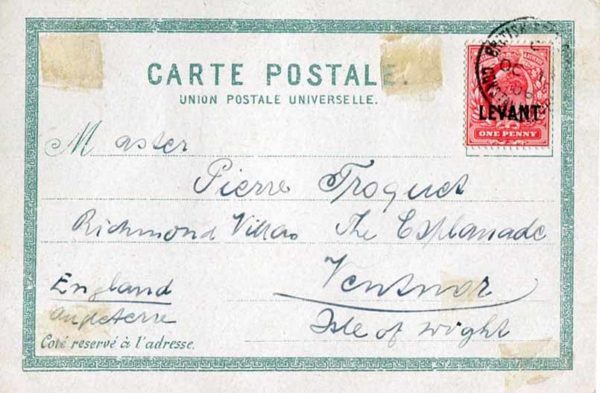 CARTE POSTALE.
UNION POSTALE UNIVERSELLE.
LEVANT
ONE PENNY
Master
Pierre Troquet
Richmond Villas The Esplanade
Ventnor
England
Isle of Wight
Angleterre
Coté reservé à l'adresse.